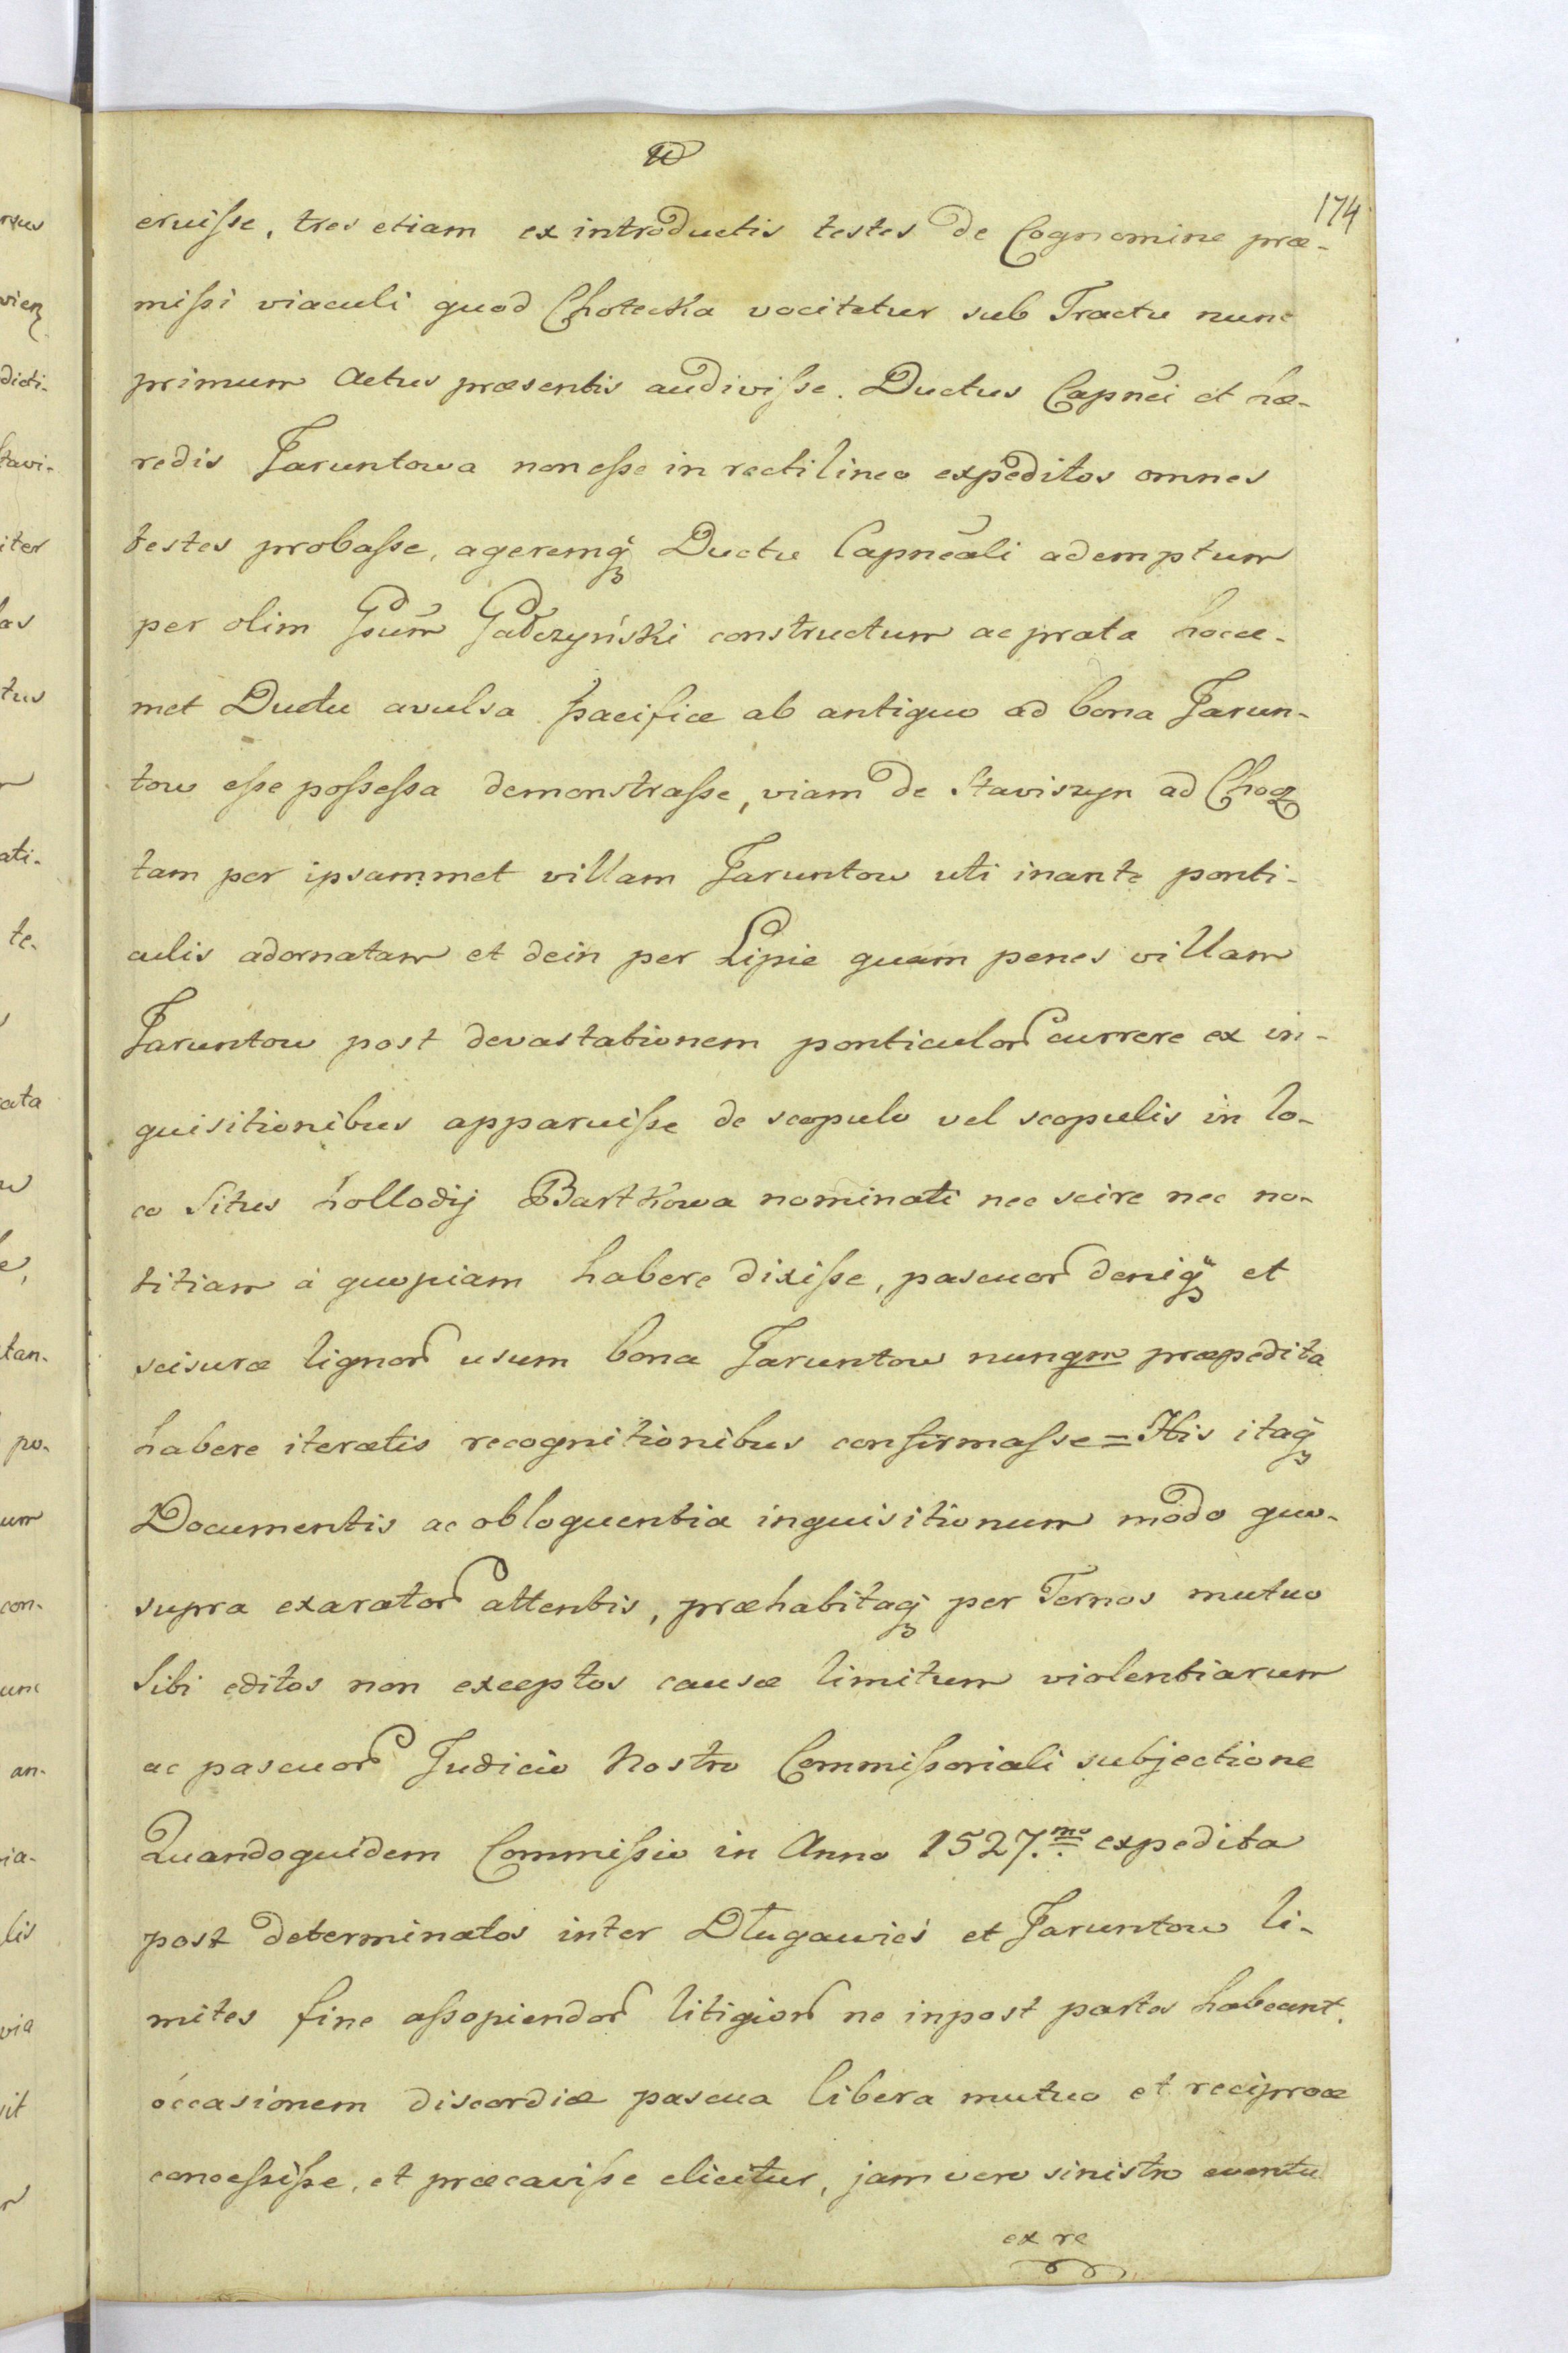 174
eruisse, tres etiam ex introductis testes de Cognomine præ-
missi viaculi quod Chotecka vocitetur sub Tractu nunc
primum Actus præsentis audivisse. Ductus Capnei et hæ-
redis Jaruntowa non esse in rectilineo expeditos omnes
testes probasse, ageremq́ Ductu Capneali ademptum
per olim Gsum Gadczyński constructum ac prata hocce-
met Ductu avulsa pacifice ab antiquo ad bona Jarun-
tow esse possessa demonstrasse, viam de Stawiszyn ad Choq
tam per ipsammet villam Jaruntow uti inante ponti-
culis adornatam et dein per Lipie quam penes villam
Jaruntow post devastationem ponticulor currere ex in-
quisitionibus apparuisse de scopulo vel scopulis in lo-
co Situs hollodij Bartkowa nominati nec scire nec no-
titiam à quopiam habere dixisse, pascuor deniq́ et
scisuræ lignor usum bona Jaruntow nunqm præpedita
habere iteratis recognitionibus confirmasse = His itaq́
Documentis ac obloquentia inquisitionum modo quo-
supra exarator attentis, præhabitaq́ per Ternos mutuo
Sibi editos non exceptos causæ limitum violentiarum
ac pascuor Judicio Nostro Commissoriali subjectione
Quandoquidem Commissio in Anno 1527.mo expedita
post determinatos inter Długawieś et Jaruntow li-
mites fine assopiendor litigior ne inpost partes habeant.
occasionem discordiæ pascua libera mutuo et reciproce
concessisse, et præcavisse elicitur, jam vero sinistro eventu
ex re